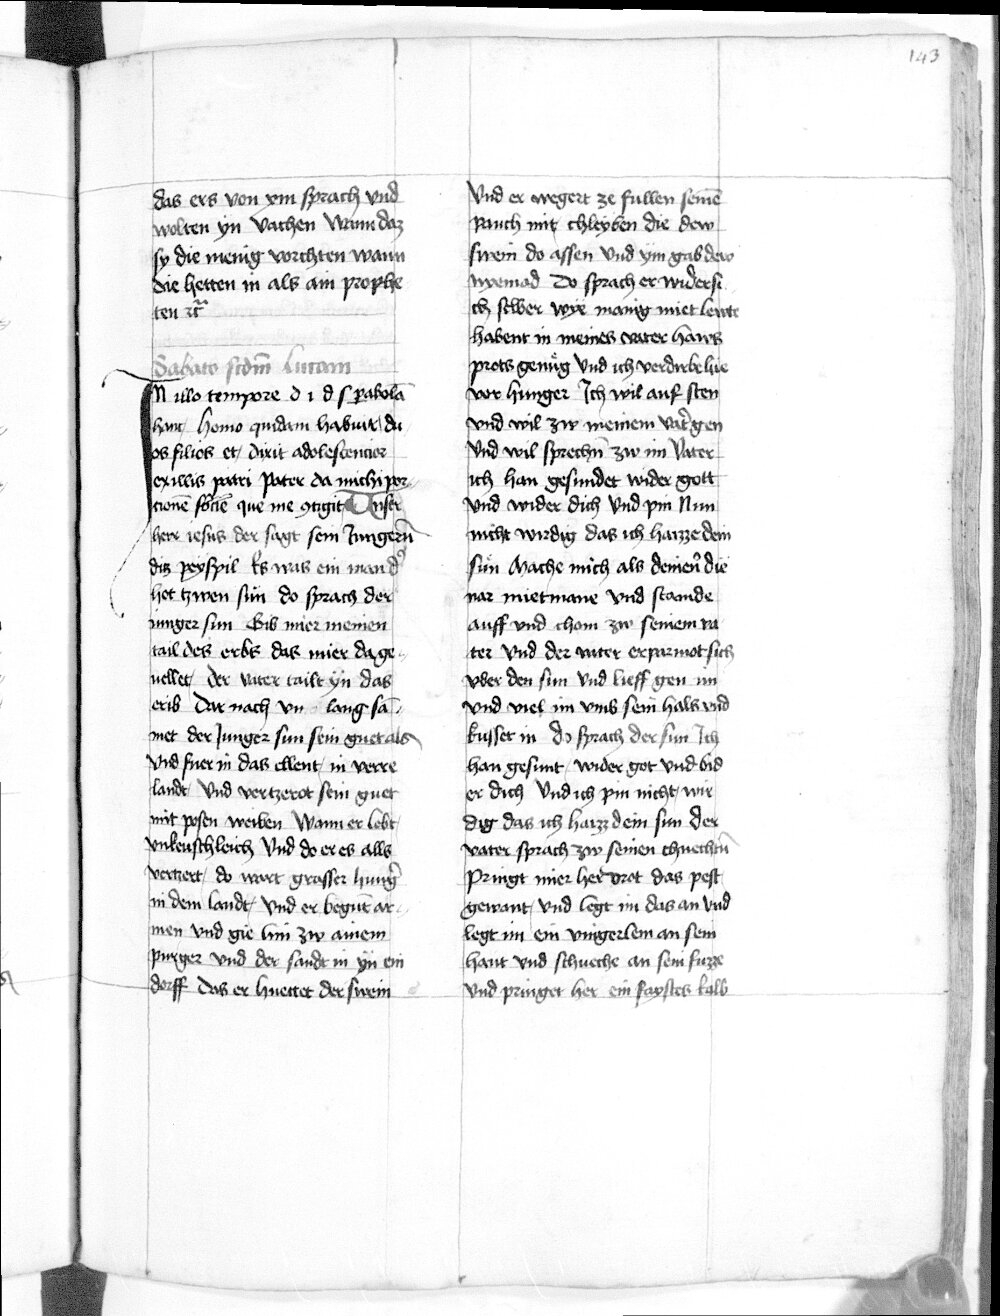 143
das ers von xm sprach vnd
wolten yn vachen Wann daz
sy die menig vorchten wann
die hetten in als ain prophe
ten rc̃
Sabato scdm̄ lucam
In illo tempore d i d s pabolā
hanc homo quidam habuit du
os filios et dixit adolescencior
ex illis patri Pater da michi por
cionē sbſtācie que me ↄtigit Vnser
herr iesus der sagt sein Jungern̄
ditz peyspil Es was ein man d͛
het tzwen sün do sprach der
iunger sun Gib mier meinen
tail deis erbs das mier da ge
uellet der vater tailt yn das
erib Dar nach vn lang sā
met der Junger sun sein guet als
vnd fuer in das ellent in verre
landt vnd vertzerot sein guet
mit posen weiben Wann er lebt
vnkeuschleich Vnd do er es alls
vertzert do wart grosser hung͛
in dem landt vnd er begūt ar
men vnd gie hin zw ainem
purger vnd der sandt in yn ein
dorff das er huettet der swein
Vnd er wegert ze fullen seinē
Pauch mit chleyben die dew
swein do assen Vnd ym gab dew
nyemād Do sprach er wider si
ch selber wye manig miet lewte
habent in meines vater haws
prots genüg Vnd ich verdirbe hie
vor hunger Ich wil auf sten
vnd wil zw meinem vat͛ gen
Vnd wil sprechn̄ zw im Vater
ich han gesundet wider gott
vnd wider dich Vnd pin Nun
nicht wirdig das ich haizze dein
sün Mache mich als deinen͛ die
nar mietmane vnd stande
auff vnd chom zw seinem va
ter Vnd der vater erparmot sich
vber den sun Vnd lieff gen im
vnd viel im vmb sein hals vnd
kusset in do sprach der sun Ich
han gesunt wider got vnd bid
er dich Vnd ich pin nicht wir
dig das ich haizz dein sun der
vater sprach zw seinen chnechtn̄
Pringt mier her vrot das pest
gewant vnd legt im das an vnd
legt im ein vingerlein an sein
hant vnd schueche an sein fuzze
vnd pringet her ein faystes kalb